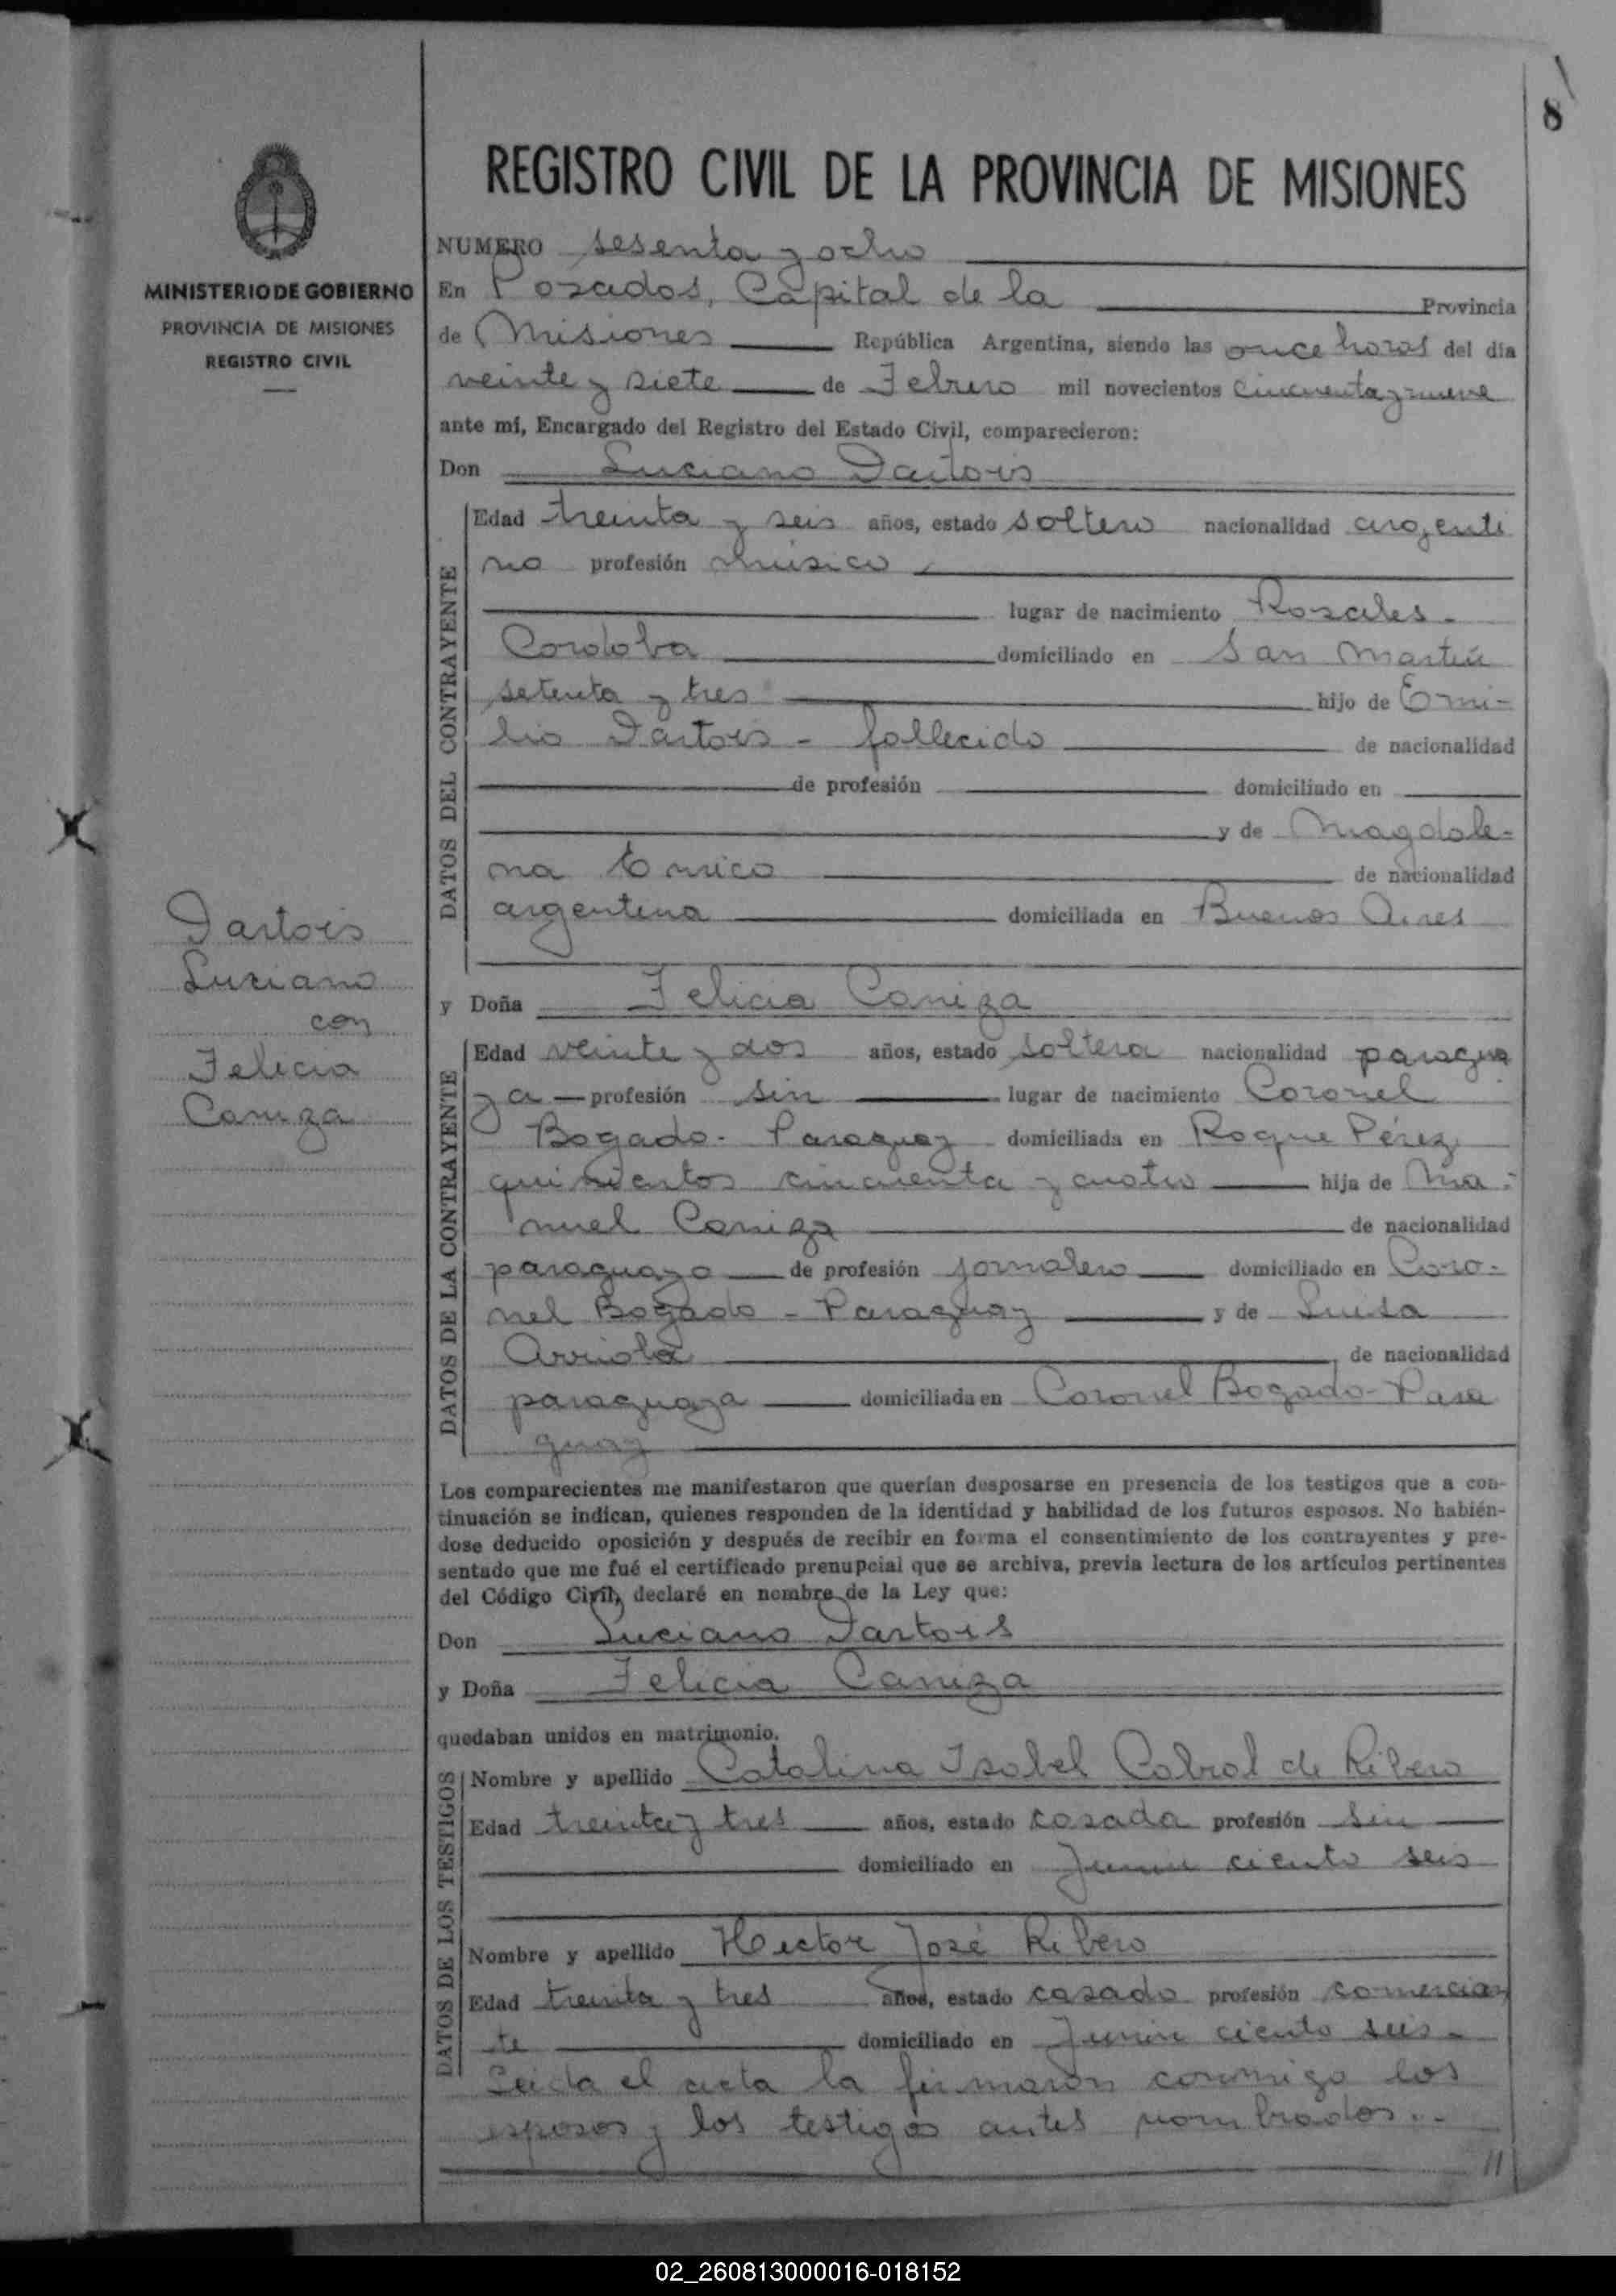 8
REGISTRO CIVIL DE LA PROVINCIA DE MISIONES
MINISTERIO DE GOBIERNO
PROVINCIA DE MISIONES
REGISTRO CIVIL
NUMERO sesenta y ocho
En Posadas, Capital de la Provincia
de Misiones República Argentina, siendo las once horas del día
veinte y siete de Febrero mil novecientos cincuenta y nueve
ante mí, Encargado del Registro del Estado Civil, comparecieron:
Don Luciano Dartois
DATOS DEL CONTRAYENTE
Edad treinta y seis años, estado soltero nacionalidad argenti
no profesión músico
lugar de nacimiento Rosales -
Cordoba domiciliado en San Martín
setenta y tres hijo de Emi-
lio Dartois - fallecido de nacionalidad
de profesión domiciliado en
y de Magdale-
na de nacionalidad
argentina domiciliada en Buenos Aires
Dartois
Luciano
con
Felicia
Caniza
y Doña Felicia Caniza
DATOS DE LA CONTRAYENTE
Edad veinte y dos años, estado soltera nacionalidad paragua
ya - profesión sin lugar de nacimiento Coronel
Bogado - Paraguay domiciliada en Roque Pérez
quinientos cincuenta y cuatro hija de Ma-
nuel Caniza de nacionalidad
paraguayo de profesión jornalero domiciliado en Coro-
nel Bogado - Paraguay y de Luisa
Arriola de nacionalidad
paraguaya domiciliada en Coronel Bogado - Para
guay
Los comparecientes me manifestaron que querían desposarse en presencia de los testigos que a con-
tinuación se indican, quienes responden de la identidad y habilidad de los futuros esposos. No habién-
dose deducido oposición y después de recibir en forma el consentimiento de los contrayentes y pre-
sentado que me fué el certificado prenupcial que se archiva, previa lectura de los artículos pertinentes
del Código Civil, declaré en nombre de la Ley que:
Don Luciano Dartois
y Doña Felicia Caniza
quedaban unidos en matrimonio.
DATOS DE LOS TESTIGOS
Nombre y apellido Catalina Isabel Cabral de Ribero
Edad treinta y tres años, estado casada profesión sin
domiciliado en Junin ciento seis
Nombre y apellido Hector José Ribero
Edad treinta y tres años, estado casado profesión comercian
te domiciliado en Junin ciento seis -
Leida el acta la firmaron conmigo los
esposos y los testigos antes nombrados..-
//
02_260813000016-018152